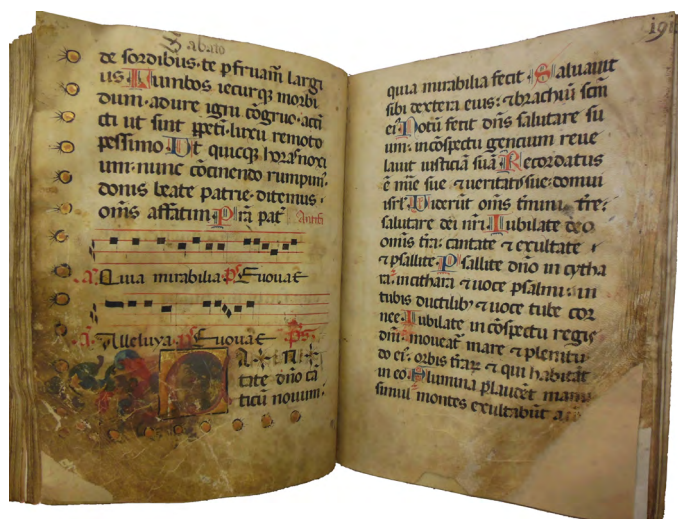 Sabato
de sordibus·te pfruam̃ largi
us·Lumbos iecurqȝ morbi
dum·adure igni cõgruo·acci
cti ut sint ꝑpeti·luxu remoto
pessimo·Ut quicqȝ horas noxi
um·nunc cõcinendo rumpim̃·
donis beate patrie·ditemus·
om̃s affatim·P̃ra pat̃ Antiƒ
.a. Quia mirabilia p̃s Euouae
.a. Alleluya p̃s Euouae p̃s
CANTATE
tate dño cã
ticũ nouum:
19
quia mirabilia fecit·Saluauit
sibi dextera eius: ⁊brachiũ scm̃
ei᷒·Notũ fecit dñs salutare su
um: in cõspectu gencium reue
lauit iusticiã suã·Recordatus
ẽ mie sue ⁊ueritatis sue: domui
isrl̃·Uiderũt om̃s tmini tre:
salutare dei nr̃i·Iubilate deo
om̃is tra: cantate ⁊ exultate
⁊ psallite·Psallite dño in cytha
ra: in cithara ⁊ uoce psalmi: in
tubis ductilibȝ ⁊ uoce tube cor
nee·Iubilate in cõspectu regis
dñi: moueat̃ mare ⁊ plenitu
do ei᷒: orbis trarȝ ⁊ qui habitãt
in eo·Flumina plaudẽt manu
simul montes exultabũt a